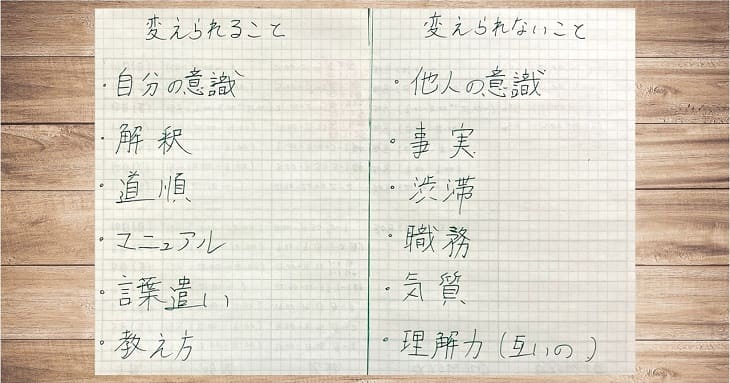 変えられること
・自分の意識
・解釈
・道順
・マニュアル
・言葉遣い
・教え方
変えられないこと
・他人の意識
・事実
・渋滞
・職務
・気質
・理解力(互いの)